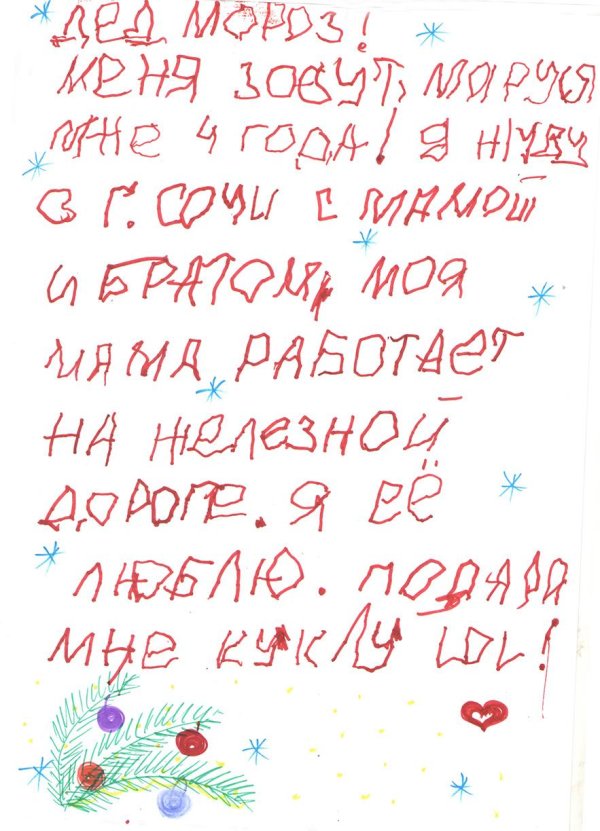 ДЕД МОРОЗ!
МЕНЯ ЗОВУТ, МАРУСЯ
МНЕ 4 ГОДА! Я ЖИВУ
В Г. СОЧИ С МАМОЙ
И БРАТОМ, МОЯ
МАМА РАБОТАЕТ
НА ЖЕЛЕЗНОЙ
ДОРОГЕ. Я ЕЁ
ЛЮБЛЮ. ПОДАРИ
МНЕ КУКЛУ LOL!